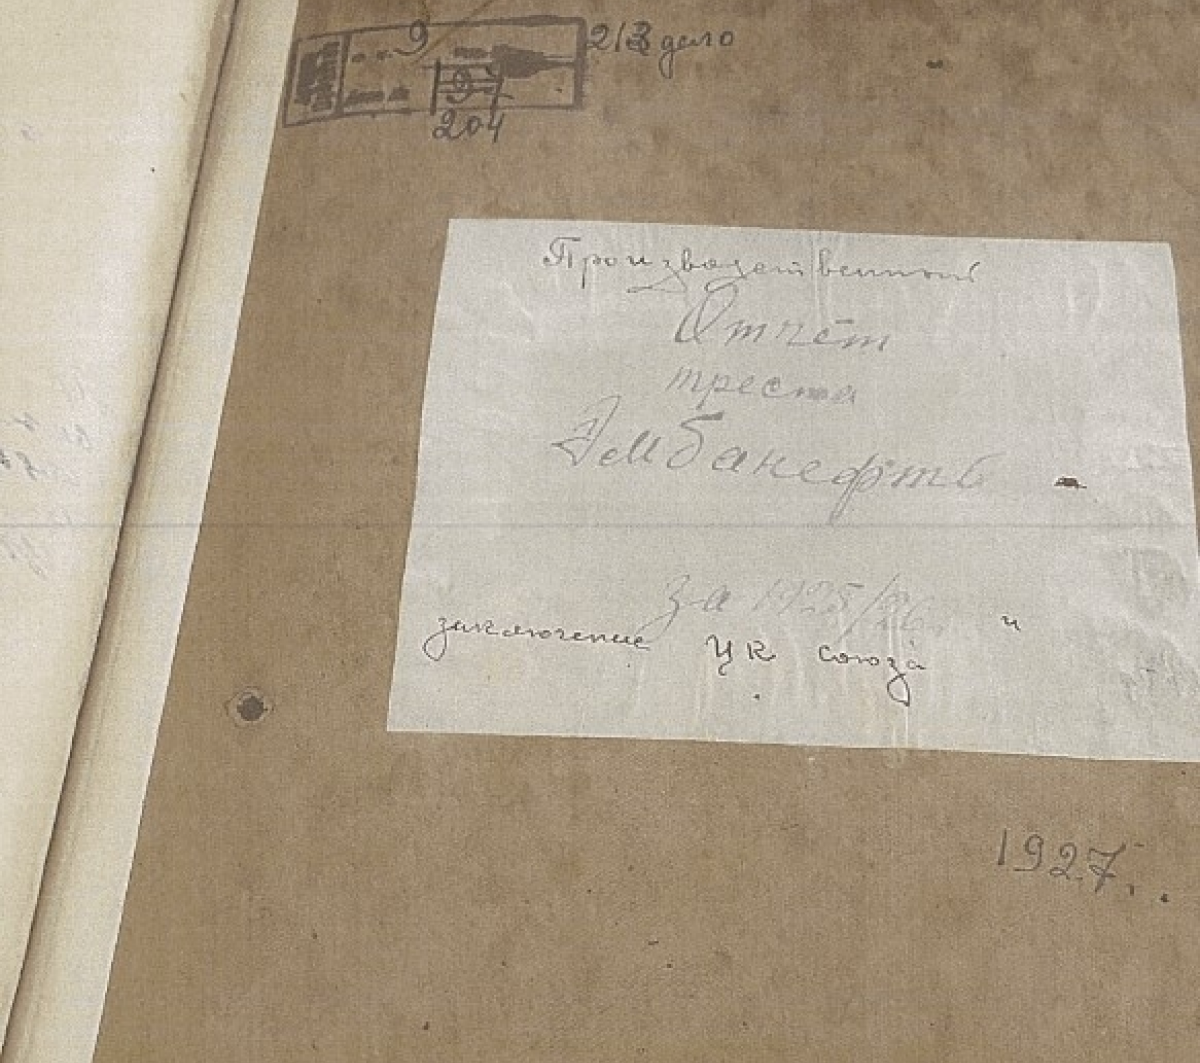 9 213 дело
97
204
Производственный
Отчёт
треста
Эмбанефть
за 1925/26г. и
заключение ЦК союза
1927г.